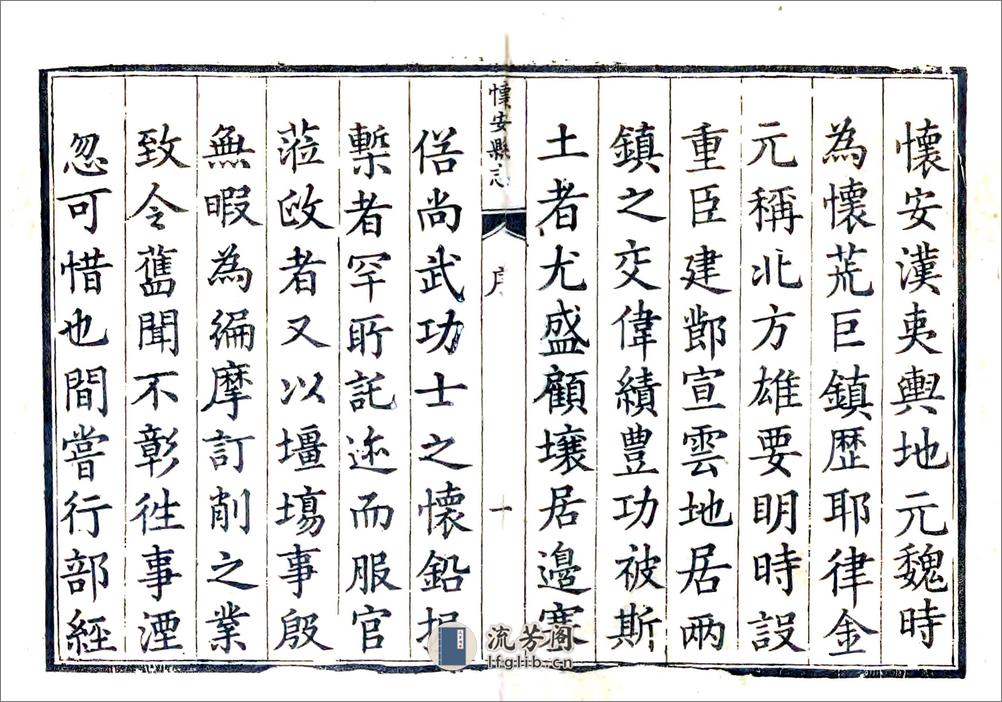 懷安漢夷輿地元魏時
為懷荒巨鎮歷耶律金
元稱北方雄要明時設
重臣建鄼宣雲地居兩
鎮之交偉績豊功被斯
土者尤盛顧壤居邊塞
懷安縣志
序
十
俗尚武功士之懷鉛
槧者罕所託迹而服官
蒞政者又以壃塲事殷
無暇為編摩訂削之業
致令舊聞不彰徃事湮
忽可惜也間嘗行部經
流芳阁
lfglib.cn